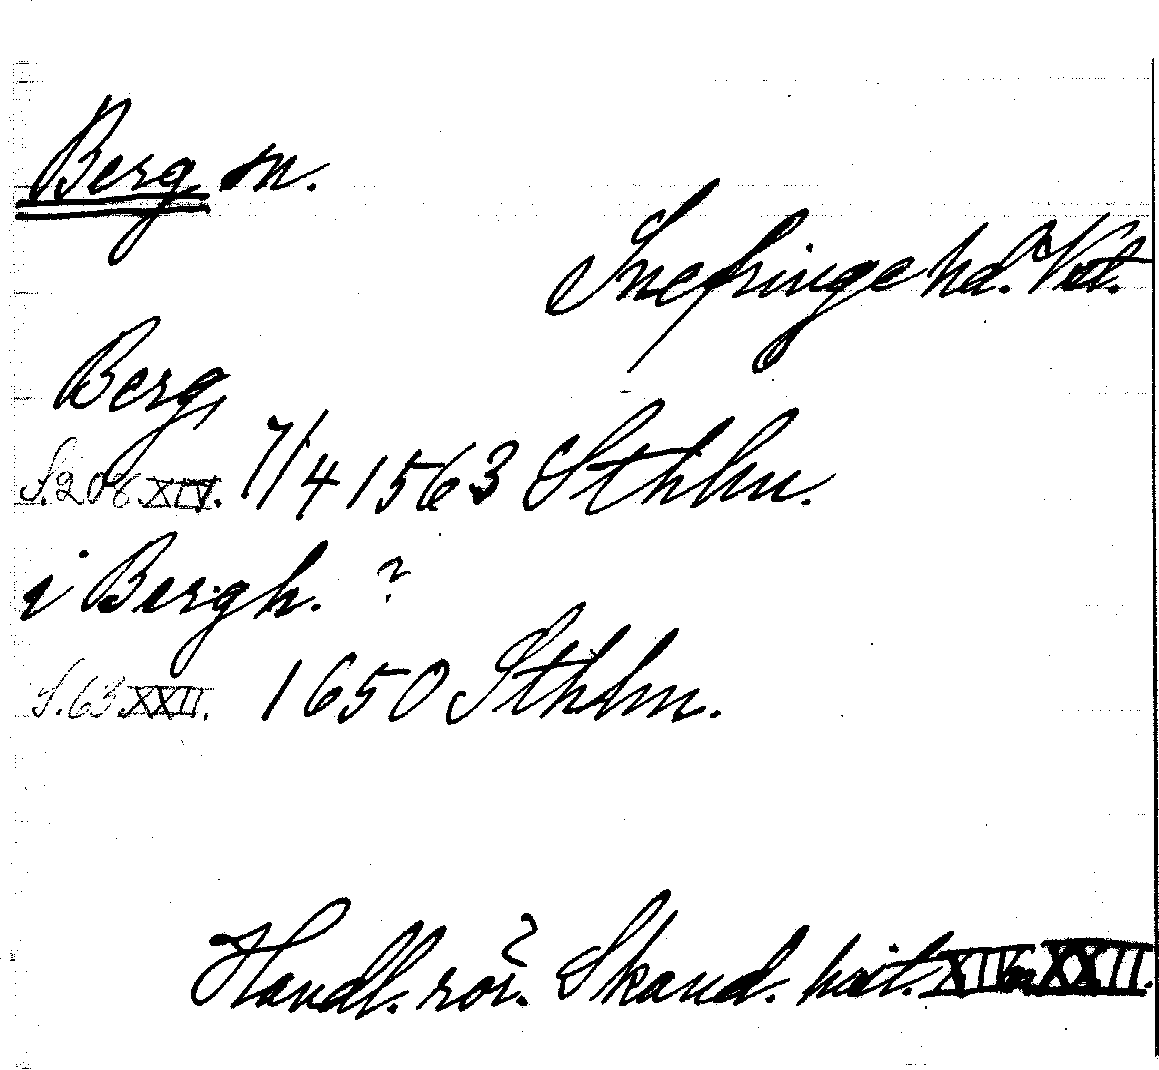 Berg sn.
Snefringe hd. Vstl.
Berg
S.206 XIV. 7/4 1563 Sthlm.
i Bergh. ?
S.63 XXII. 1650 Sthlm.
Handl. rör. Skand. hist. XXII.